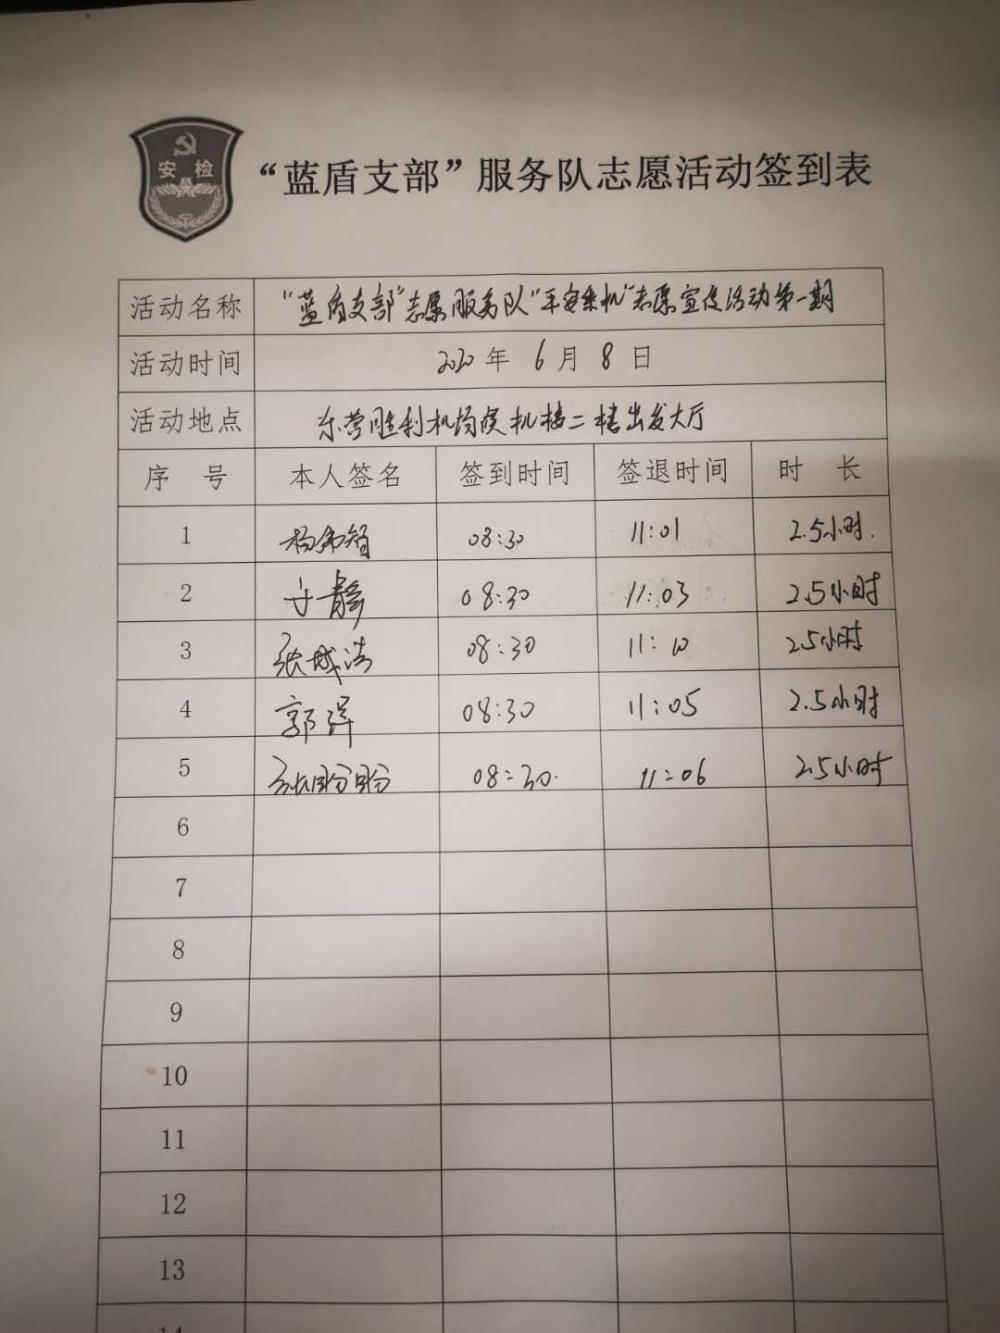 安检
“蓝盾支部”服务队志愿活动签到表
活动名称 “蓝盾支部”志愿服务队“平安乘机”志愿宣传活动第一期
活动时间 2020年 6月 8日
活动地点 东营胜利机场候机楼二楼出发大厅
序 号 本人签名 签到时间 签退时间 时 长
1 08:30 11:01 2.5小时.
2 于静 08:30 11:03 2.5小时
3 08:30 11:10 2.5小时
4 08:30 11:05 2.5小时
5 张盼盼 08:30. 11:06 2.5小时
6
7
8
9
10
11
12
13
14